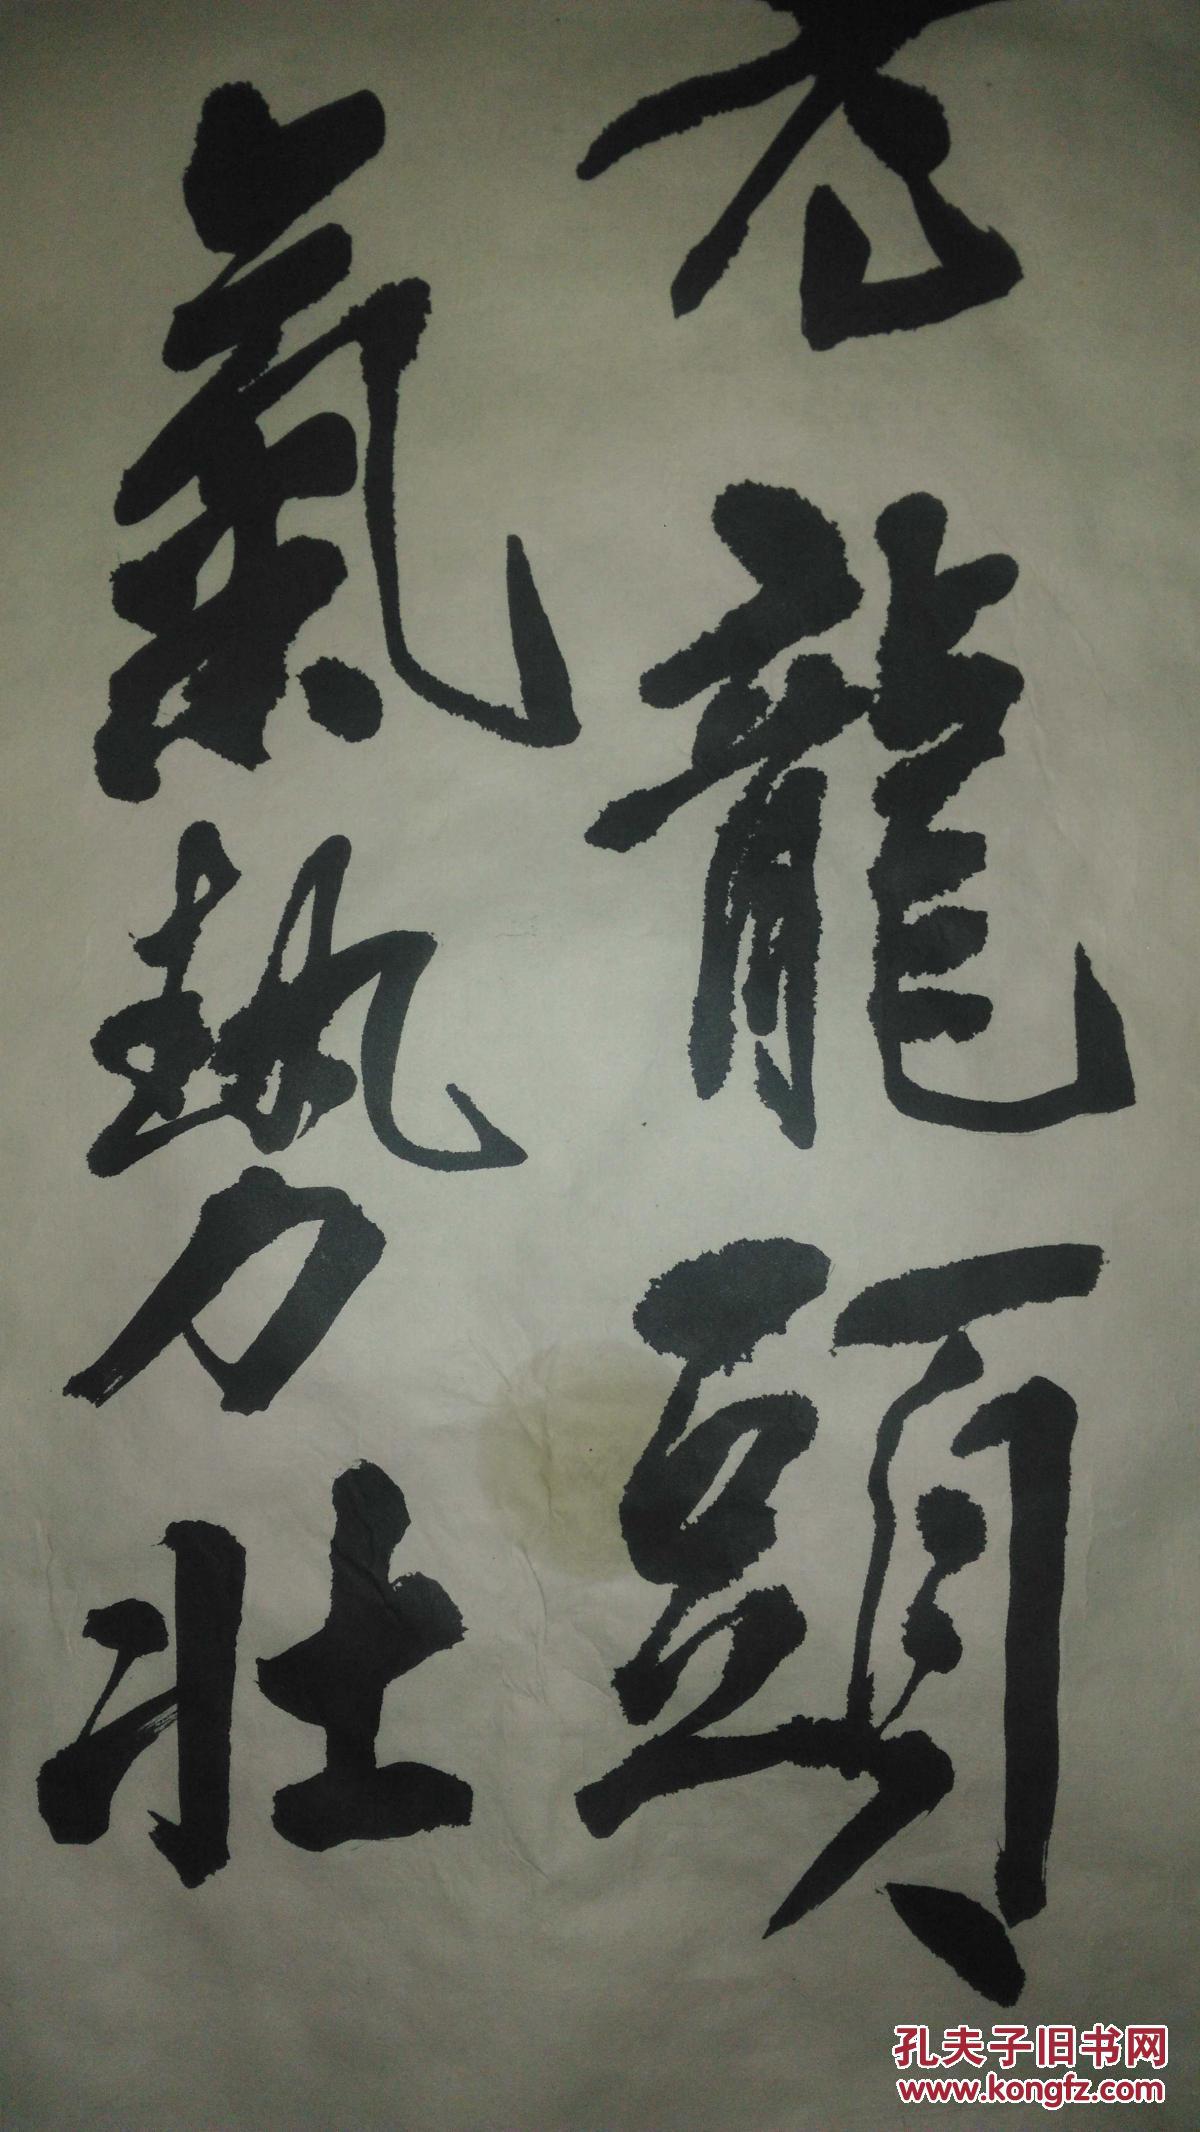 老龍頭
氣勢壯
孔夫子旧书网
www.kongfz.com